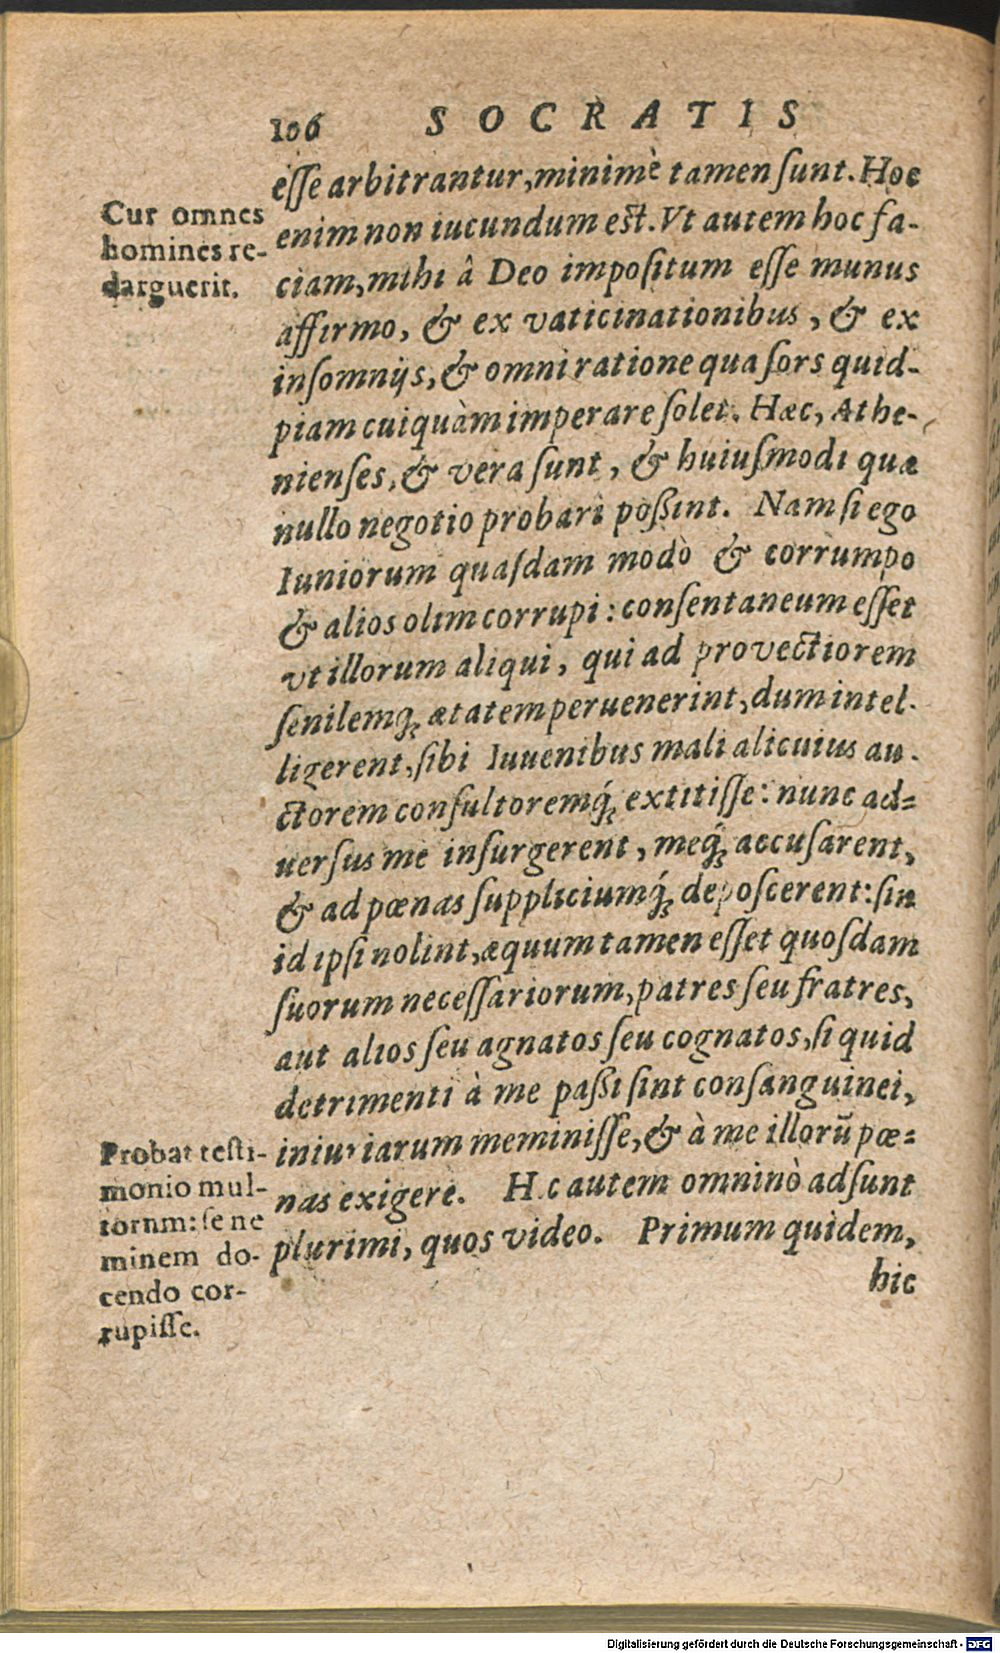 106 SOCRATIS
eſſe arbitrantur, minimè tamen ſunt. Hoc
enim non iucundum est. Vt autem hoc fa-
ciam, mihi â Deo impoſitum eſſe munus
affirmo, & ex vaticinationibus, & ex
inſomnijs, & omni ratione qua ſors quid-
piam cuiquàm imperare ſolet. Hæc, Athe-
nienſes, & vera ſunt, & huiuſmodi quæ
nullo negotio probari poßint. Nam ſi ego
Iuniorum quaſdam modò & corrumpo
& alios olim corrupi: conſentaneum eſſet
vt illorum aliqui, qui ad provectiorem
ſenilemq́; ætatem peruenerint, dum intel-
ligerent, ſibi Iuuenibus mali alicuius au-
ctorem conſultoremq́; extitiſſe: nunc ad=
uerſus me inſurgerent, meq́; accuſarent,
& ad pœnas ſuppliciumq́; depoſcerent: ſin
id ipſi nolint, æquum tamen eſſet quoſdam
ſuorum neceſſariorum, patres ſeu fratres,
aut alios ſeu agnatos ſeu cognatos, ſi quid
detrimenti à me paßi ſint conſanguinei,
iniuriarum meminiſſe, & à me illorū pœ=
nas exigere. H c autem omninò adſunt
plurimi, quos video. Primum quidem,
hic
Cur omnes
homines re-
darguerit.
Probat teſti-
monio mul-
tornm: ſe ne
minem do-
cendo cor-
rupiſſe.
Digitalisierung gefördert durch die Deutsche Forschungsgemeinschaft - DFG